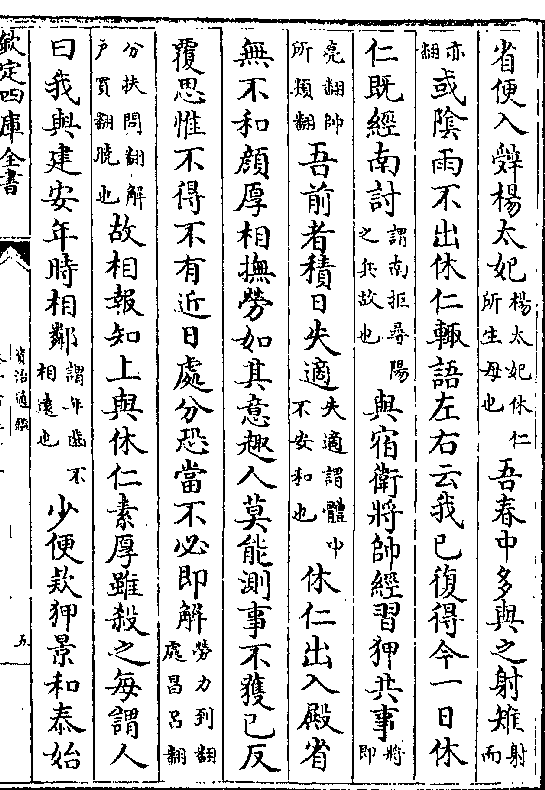 省便入辤楊太妃楊太妃休仁所生母也吾春中多與之射雉射而
亦翻或隂雨不出休仁輒語左右云我已復得今一日休
仁既經南討謂南拒尋陽之兵故也與宿衛將帥經習狎共事將即
亮翻帥所類翻吾前者積日失適失適謂體中不安和也休仁出入殿省
無不和顔厚相撫勞如其意趣人莫能測事不獲已反
覆思惟不得不有近日處分恐當不必即解勞力到翻處昌呂翻
分扶問翻解户買翻曉也故相報知上與休仁素厚雖殺之每謂人
曰我與建安年時相鄰謂年齒不相遠也少便欵狎景和泰始
欽定四庫全書
資治通鑑
五